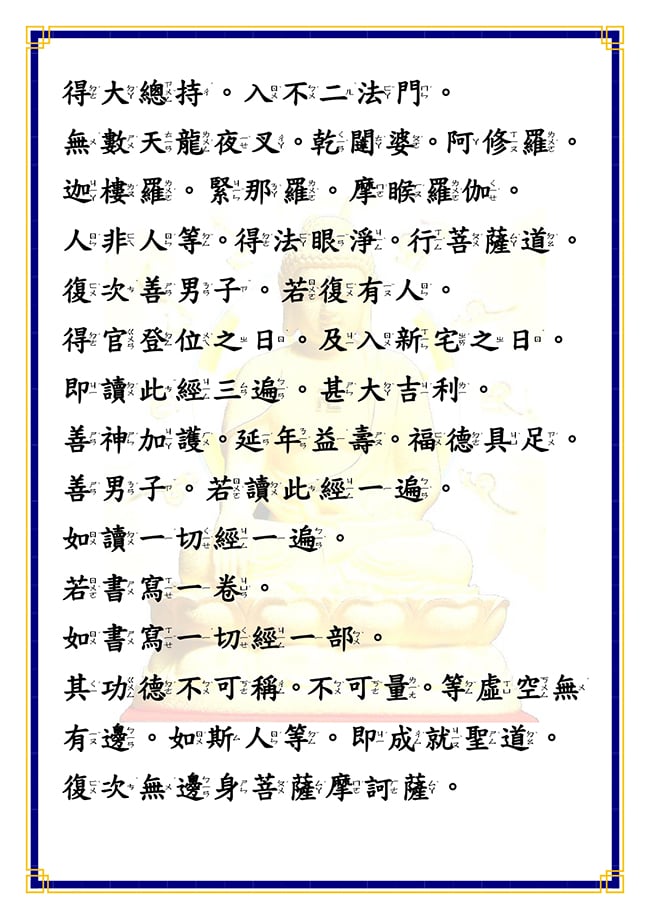 得大總持。入不二法門。
無數天龍夜叉。乾闥婆。阿修羅。
迦樓羅。緊那羅。摩睺羅伽。
人非人等。得法眼淨。行菩薩道。
復次善男子。若復有人。
得官登位之日。及入新宅之日。
即讀此經三遍。甚大吉利。
善神加護。延年益壽。福德具足。
善男子。若讀此經一遍。
如讀一切經一遍。
若書寫一卷。
如書寫一切經一部。
其功德不可稱。不可量。等虛空無
有邊。如斯人等。即成就聖道。
復次無邊身菩薩摩訶薩。